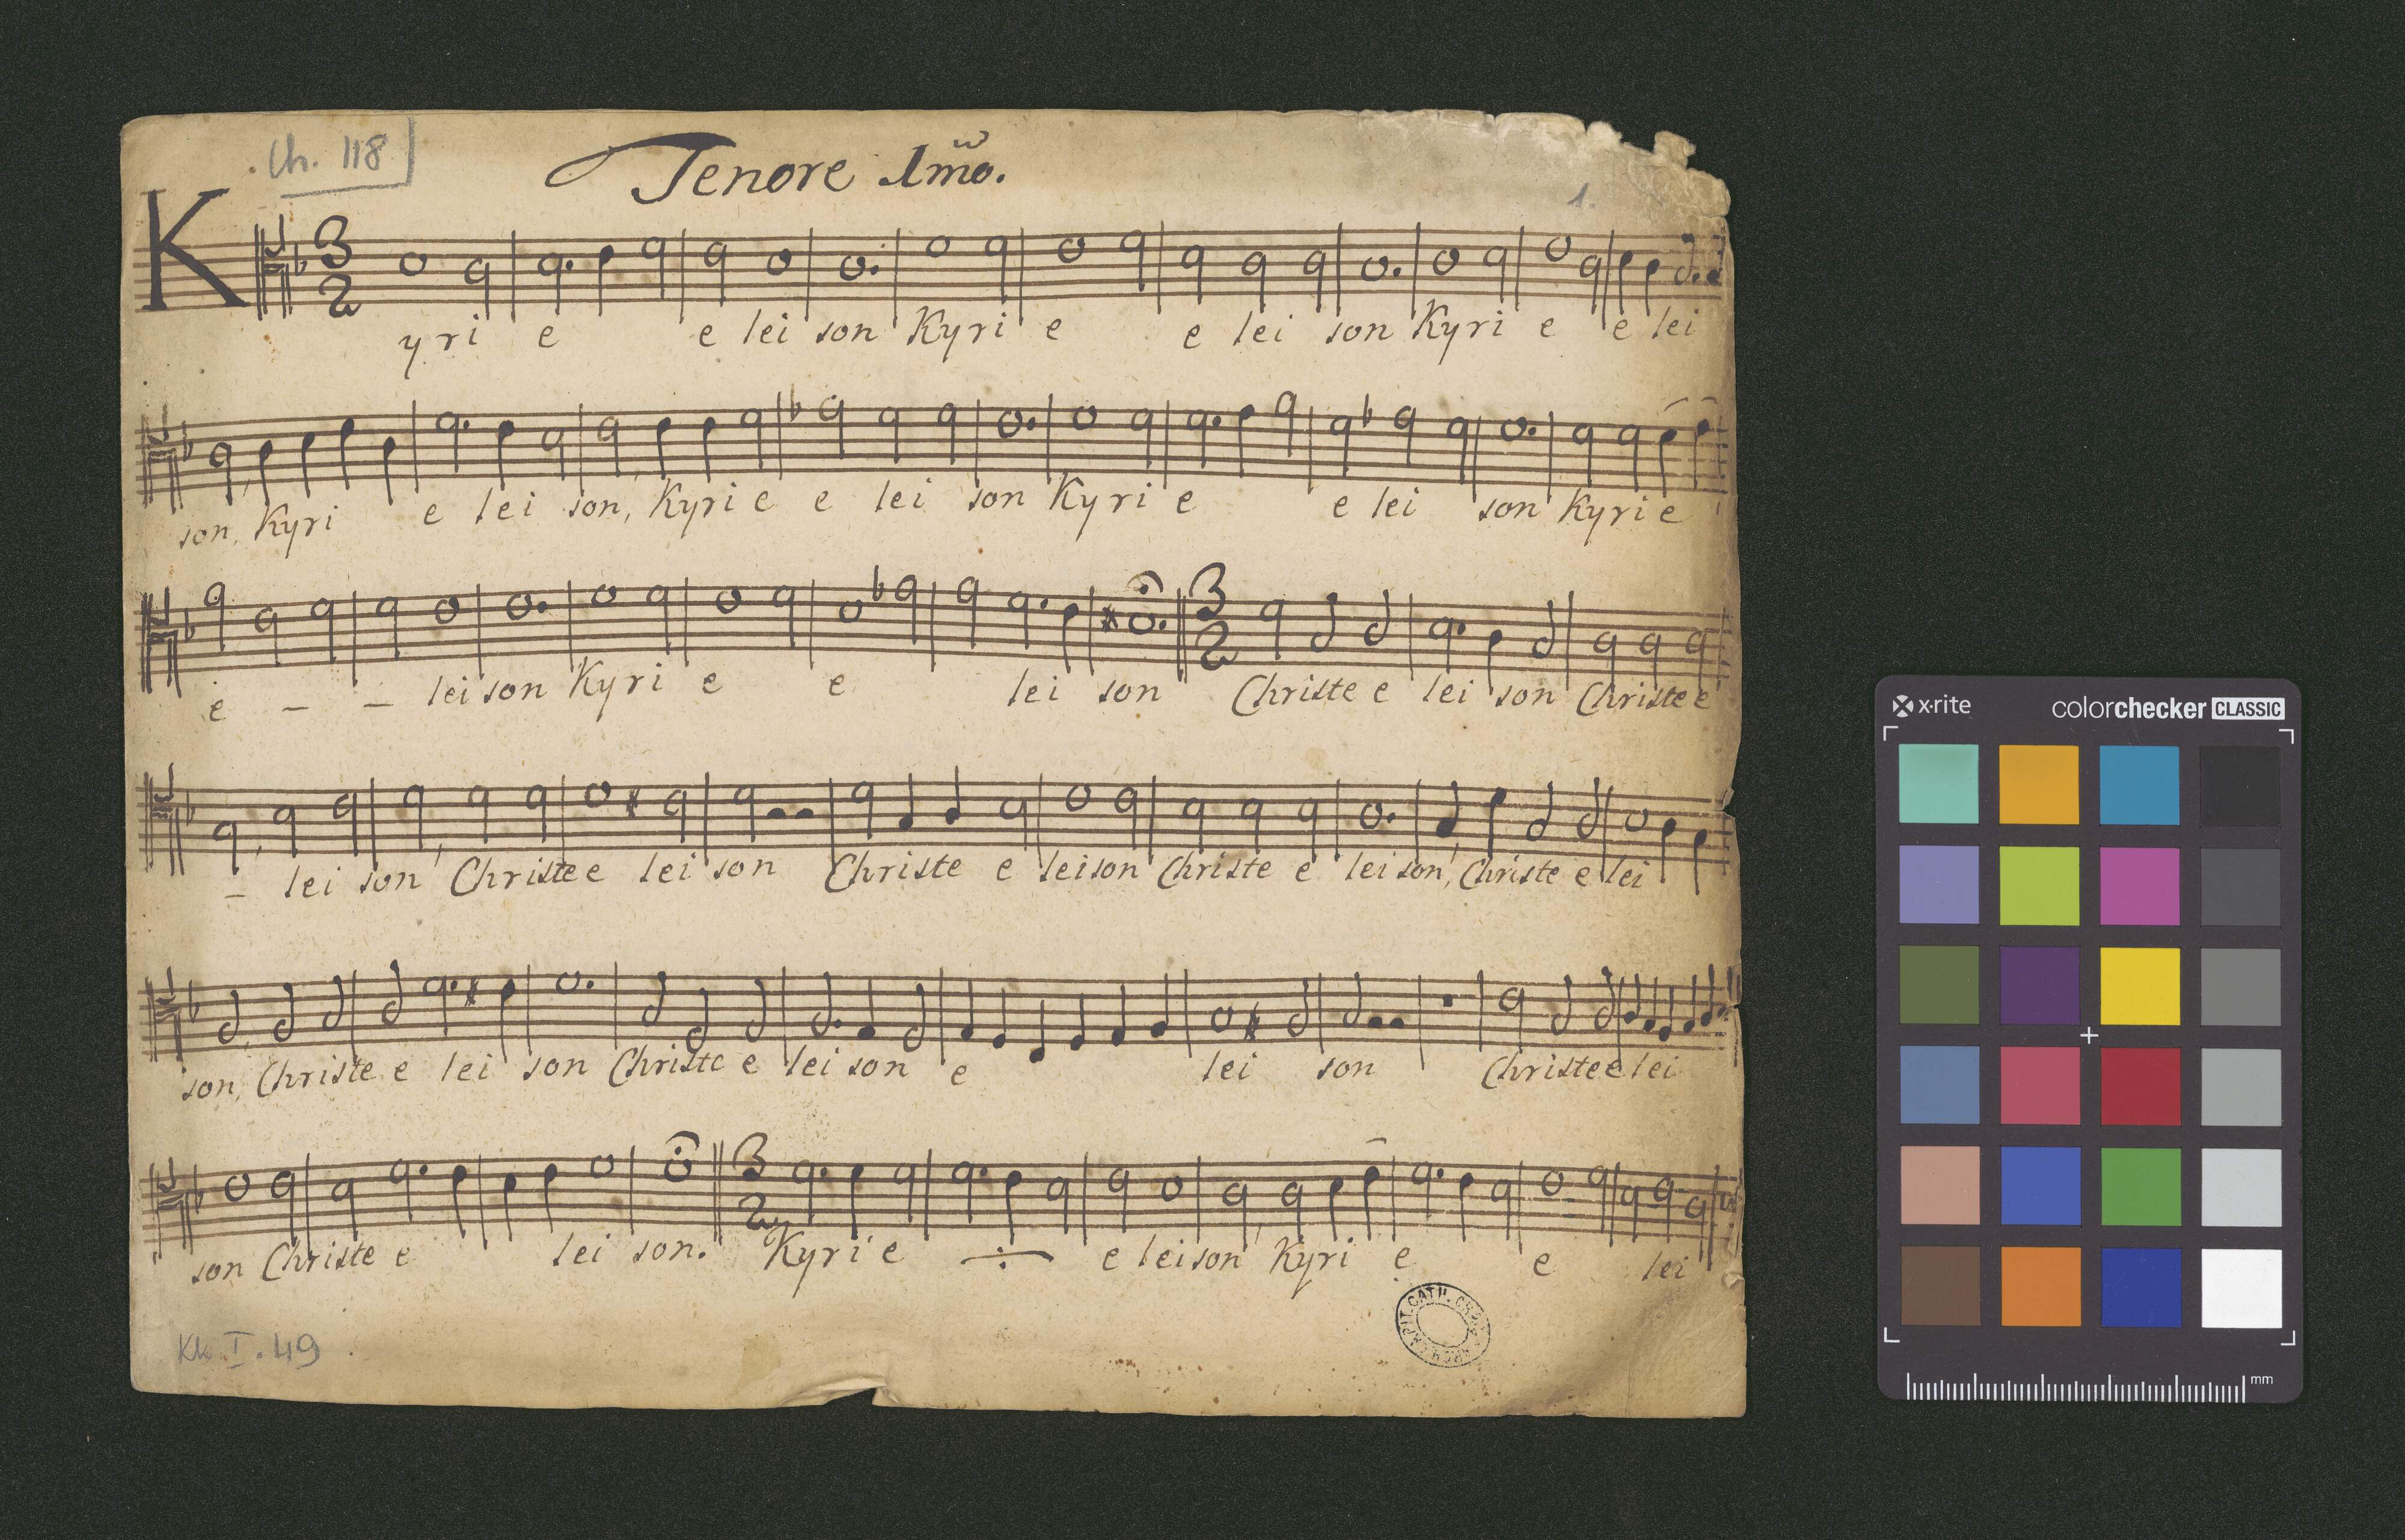 Ch. 118
Tenore 1mo.
1.
K
3
2
yri e e lei son Kyri e e lei son Kyri e e lei
son, Kyri e lei son, Kyri e e lei son Kyri e e lei son Kyri e
3
2
e – – lei son Kyri e e lei son Christe e lei son Christe e
– lei son Christe e lei son Christe e leison Christe e leison, Christe e lei
son, Christe e lei son Christe e lei son e lei son Christe e lei
3
2
son Christe e lei son. Kyri e ÷ e leison Kyri e e lei
Kk. I. 49
CATH.
x·rite
colorchecker CLASSIC
mm